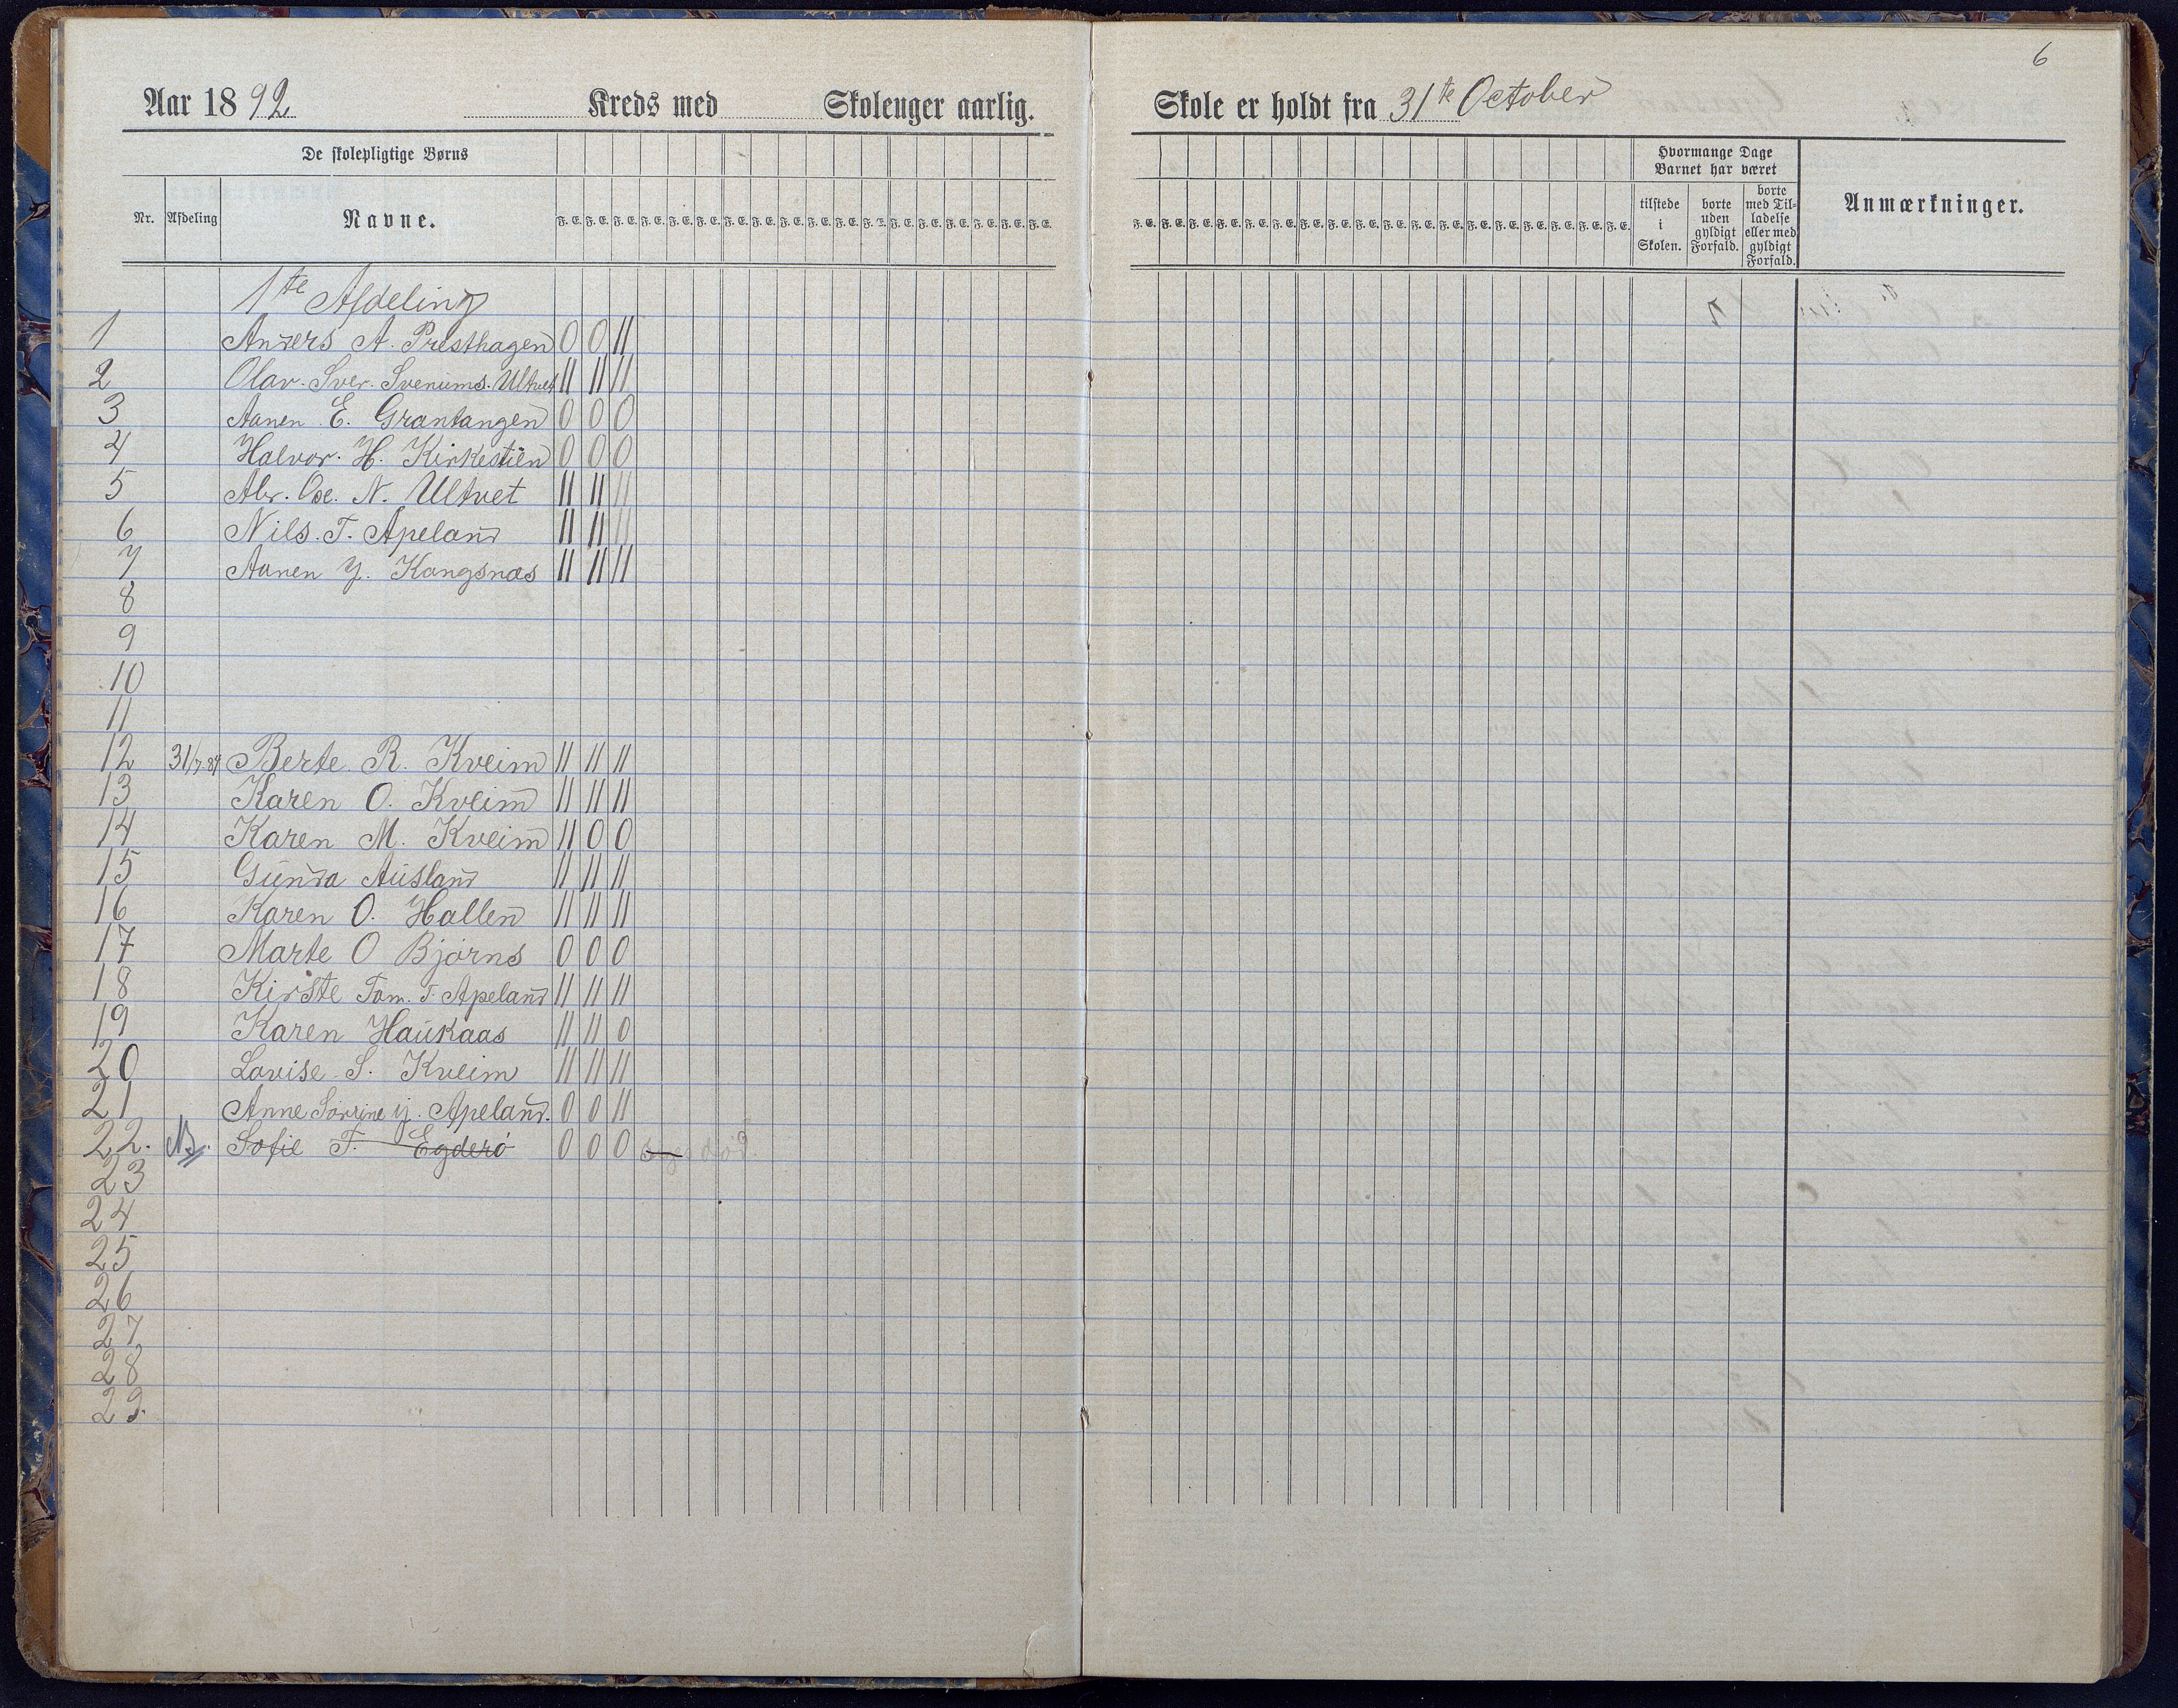 6
Aar 1892 Kreds med Skoleuger aarlig.
Skole er holdt fra 31te October
De skolepligtige Børns
Hvormange Dage Barnet har været
Nr. Afdeling Navne. F. E. F. E. F. E. F. E. F. E. F. E. F. E. F. E. F. E. F. E. F. E. F. E. F. E. F. E. F. E. F. E. F. E. F. E.
F. E. F. E. F. E. F. E. F. E. F. E. F. E. F. E. F. E. F. E. F. E. F. E. F. E. F. E. F. E. F. E. F. E. F. E. tilstede i Skolen. borte uden gyldigt Forfald. borte med Tilladelse eller med gyldigt Forfald. Anmærkninger.
1te Afdeling
1 Anders A. Presthagen 0 0 11
2 Olav. Sver. Svenums. Ultvet 11 11 11
3 Aanen E. Grantangen 0 0 0
4 Halvor. H. Kirkestien 0 0 0
5 Abr. Ose. N. Ultvet 11 11 11
6 Nils. T. Apeland 11 11 11
7 Aanen Y. Kangsnæs 11 11 11
8
9
10
11
12 31/7 84 Berte. R. Kveim 11 11 11
13 Karen O. Kveim 11 11 11
14 Karen M. Kveim 11 0 0
15 Gunda Ausland 11 11 11
16 Karen O. Hallen 11 11 11
17 Marte O Bjorns 0 0 0
18 Kirste Tom. T. Apeland 11 11 11
19 Karen Haukaas 11 11 0
20 Lovise S. Kveim 11 11 11
21 Anne Sørine y. Apeland. 0 0 11
22. Sofie T. Egderö 0 0 0 død.
23
24
25
26
27
28
29.